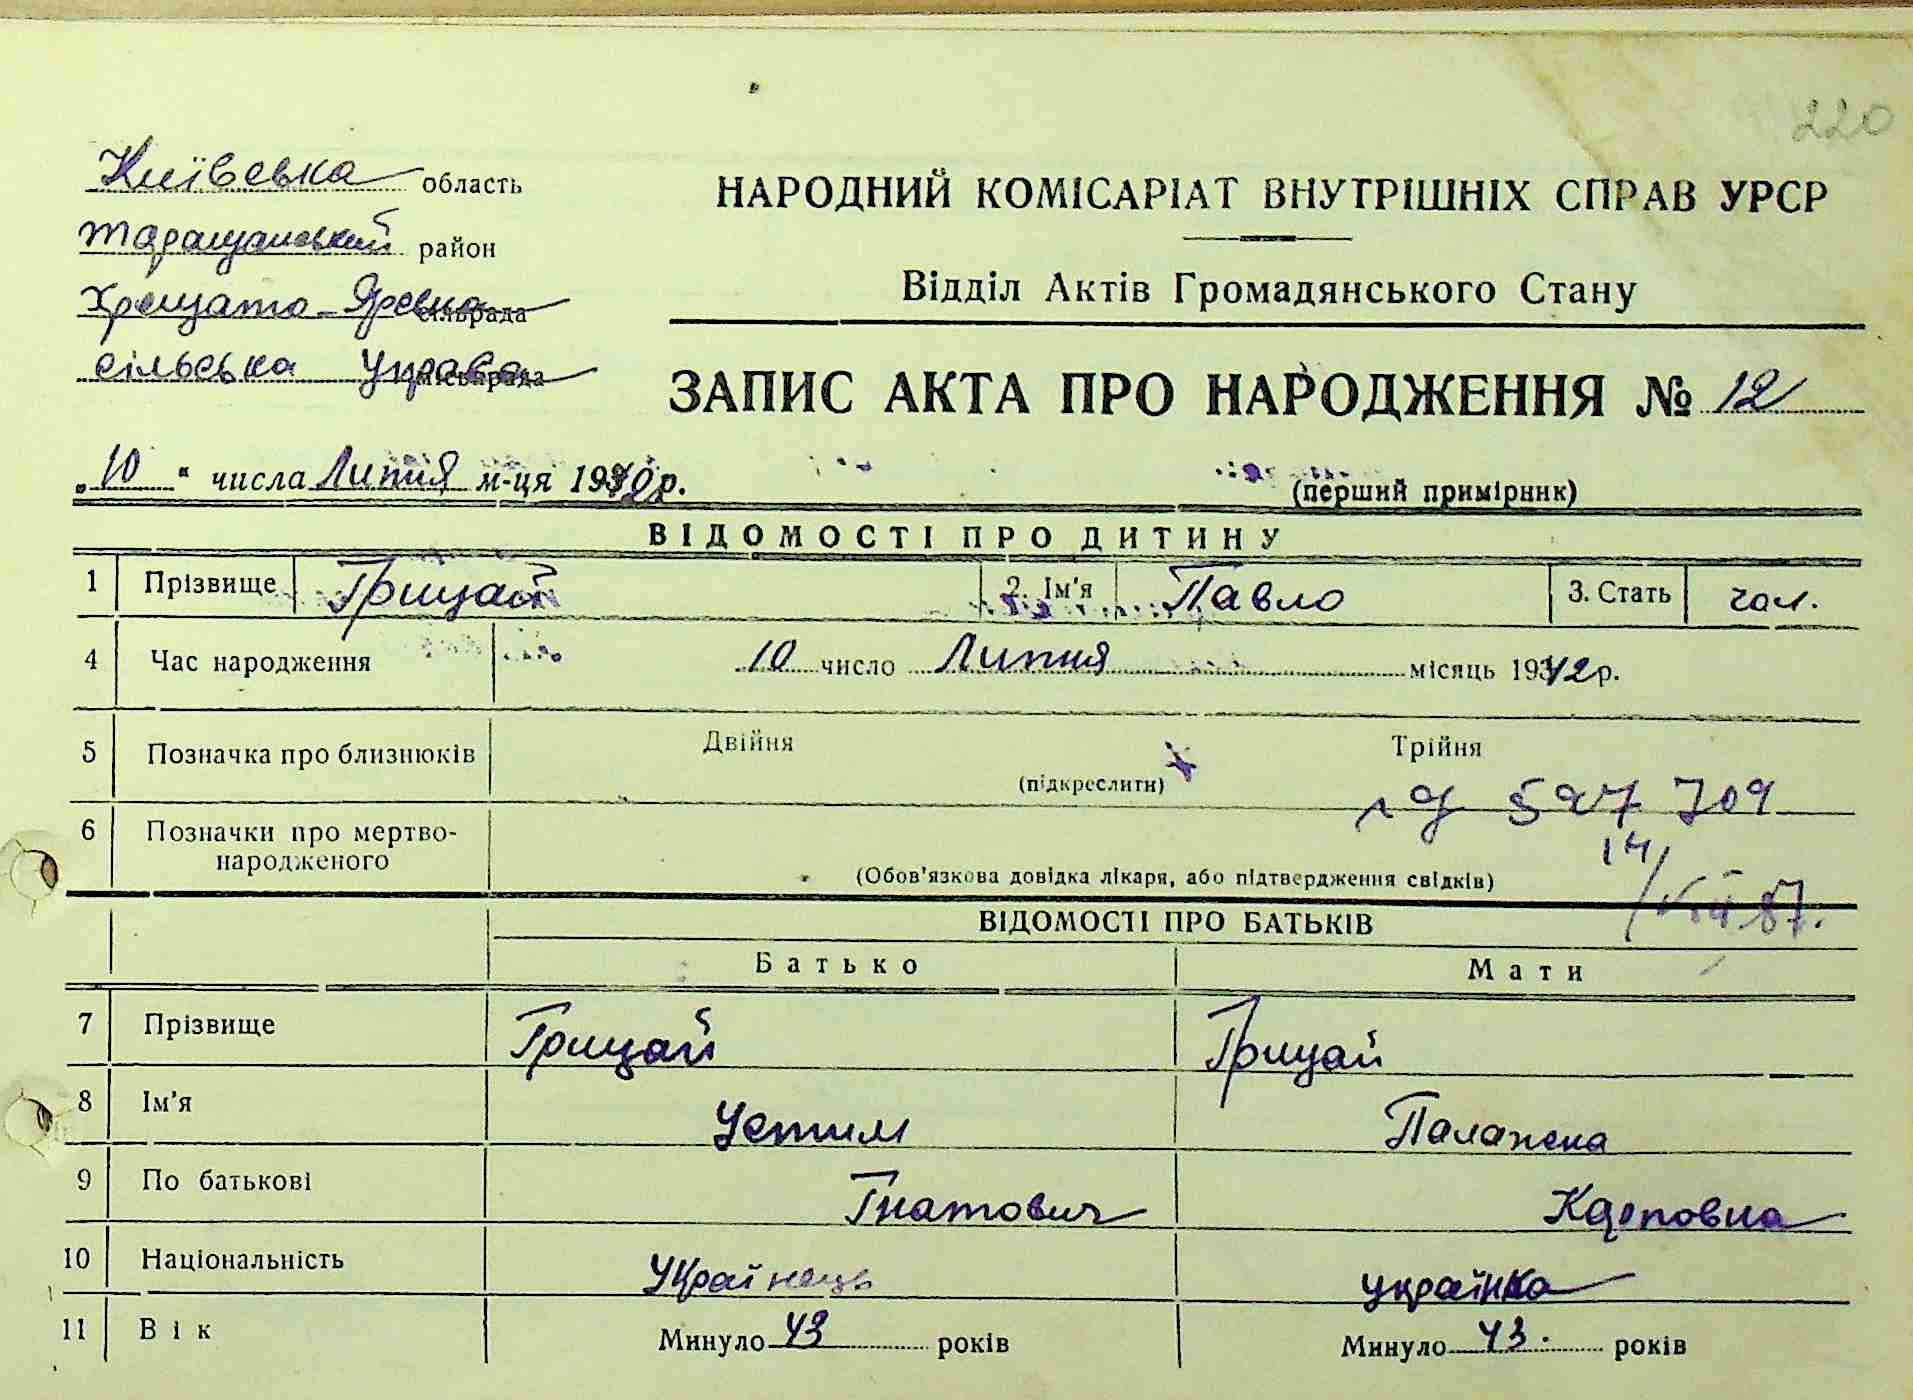 220
Київська область
Таращанський район
Хрещато-Яревка сільрада
сільська Управа міськрада
НАРОДНИЙ КОМІСАРІАТ ВНУТРІШНІХ СПРАВ УРСР
Відділ Актів Громадянського Стану
ЗАПИС АКТА ПРО НАРОДЖЕННЯ № 12
„10" числа Липня м-ця 1942 р.
(перший примірник)
ВІДОМОСТІ ПРО ДИТИНУ
1 Прізвище Грицай 2. Ім'я Павло 3. Стать чол.
4 Час народження 10 число Липня місяць 1942 р.
5 Позначка про близнюків Двійня (підкреслити) Трійня
597 709
6 Позначки про мертво-
народженого
(Обов'язкова довідка лікаря, або підтвердження свідків)
14/ 87.
ВІДОМОСТІ ПРО БАТЬКІВ
Батько Мати
7 Прізвище Грицай Грицай
8 Ім'я Устим Палажка
9 По батькові Гнатович Карповна
10 Національність Українець українка
11 Вік Минуло 43 років Минуло 43. років